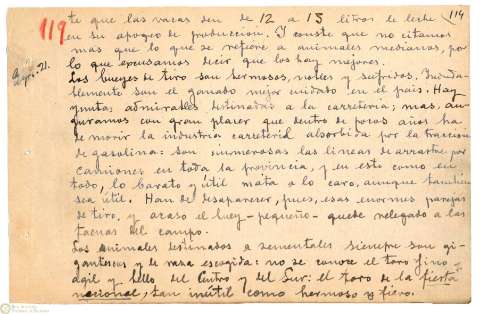 119
114
te que las vacas den de 12 a 15 litros de leche
en su apogeo de produccion. Y conste que no citamos
mas que lo que se refiere a animales medianos, por
lo que excusamos decir que los hay mejores.
Los bueyes de tiro son hermosos, nobles y sufridos. Induda-
blemente son el ganado mejor cuidado en el país. Hay
yuntas admirables destinadas a la carretería; mas, au-
guramos con gran placer que dentro de pocos años ha
de morir la industria carreteril absorbida por la traccion
de gasolina: son numerosas las lineas de arrastre por
camiones en toda la provincia, y en esto como en
todo, lo barato y útil mata a lo caro, aunque tambien
sea útil. Han de desaparecer, pues, esas enormes parejas
de tiro, y acaso el buey -pequeño- quede relegado a las
faenas del campo.
Los animales destinados a sementales siempre son gi-
gantescos y de raza escogida: no se conoce el toro fino
ágil y bello del Centro y del Sur: el toro de la fiesta
nacional, tan inútil como hermoso y fiero.